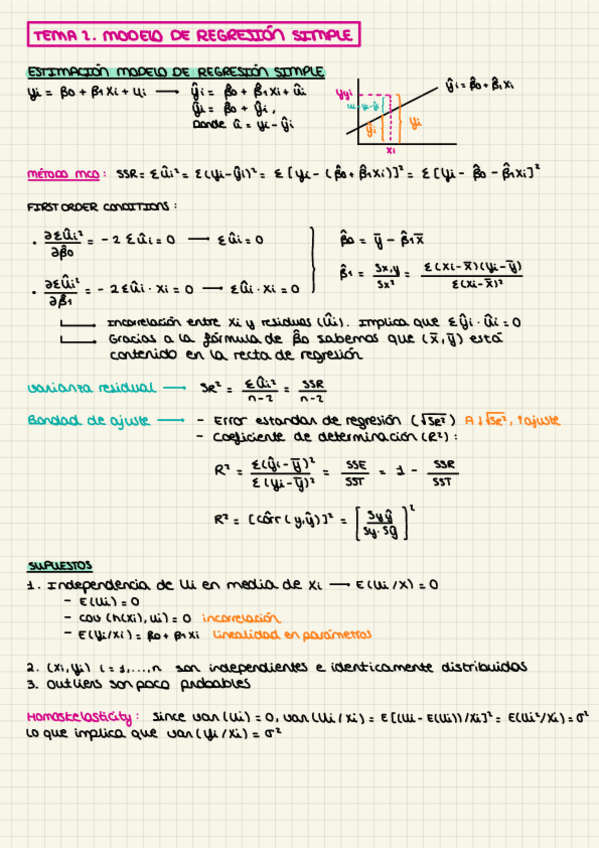 TEMA 2. MODELO DE REGRESIÓN SIMPLE
ESTIMACIÓN MODELO DE REGRESIÓN SIMPLE
yi = β0 + β1xi + ui ⟶ ŷi = β̂0 + β̂1xi + ûi
ŷi = β̂0 + ŷi,
Donde û = yi - ŷi
yyi
ui = yi - ŷi
ŷi
yi
xi
ŷi = β̂0 + β̂1xi
MÉTODO MCO: SSR = Σûi² = Σ(yi - ŷi)² = Σ[yi - (β̂0 + β̂1xi)]² = Σ[yi - β̂0 - β̂1xi]²
FIRST ORDER CONDITIONS:
· ∂Σûi²/∂β̂0 = -2 Σûi = 0 ⟶ Σûi = 0
β̂0 = ȳ - β̂1x̄
· ∂Σûi²/∂β̂1 = -2Σûi · xi = 0 ⟶ Σûi · xi = 0
β̂1 = Sx,y/Sx² = Σ(xi - x̄)(yi - ȳ)/Σ(xi - x̄)²
Incorrelación entre xi y residuos (ûi). Implica que Σŷi · ûi = 0
Gracias a la fórmula de β̂0 sabemos que (x̄, ȳ) está
contenido en la recta de regresión
Varianza residual ⟶ SR² = Σûi²/n-2 = SSR/n-2
Bondad de ajuste ⟶ - Error estandar de regresión (√SR²) A ↓√SR², ↑ajuste
- Coeficiente de determinación (R²):
R² = Σ(ŷi - ȳ)²/Σ(yi - ȳ)² = SSE/SST = 1 - SSR/SST
R² = [côrr(y,ŷ)]² = [Syŷ/Sy·Sŷ]²
SUPUESTOS
1. Independencia de Ui en media de Xi ⟶ E(Ui/X) = 0
- E(Ui) = 0
- cov(h(Xi), Ui) = 0 incorrelación
- E(Yi/Xi) = β0 + β1Xi Linealidad en parámetros
2. (Xi,Yi) i = 1,...,n son independientes e identicamente distribuidas
3. Outliers son poco probables
Homoskelasticity: Since var(Ui) = 0, var(Ui/Xi) = E[(Ui - E(Ui))/Xi]² = E(Ui²/Xi) = σ²
Lo que implica que var(Yi/Xi) = σ²